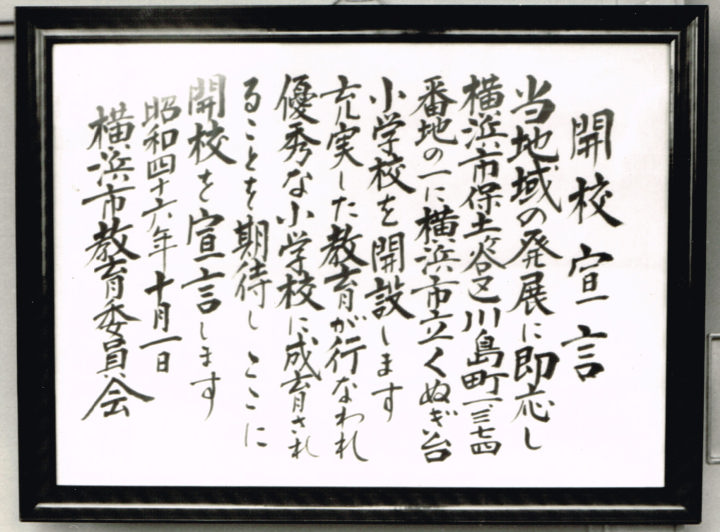 開校宣言
当地域の発展に即応し
横浜市保土谷区川島町一、三七四
番地の一に横浜市立くぬぎ台
小学校を開設します
充実した教育が行なわれ
優秀な小学校に成育され
ることを期待しここに
開校を宣言します
昭和四十六年十月一日
横浜市教育委員会